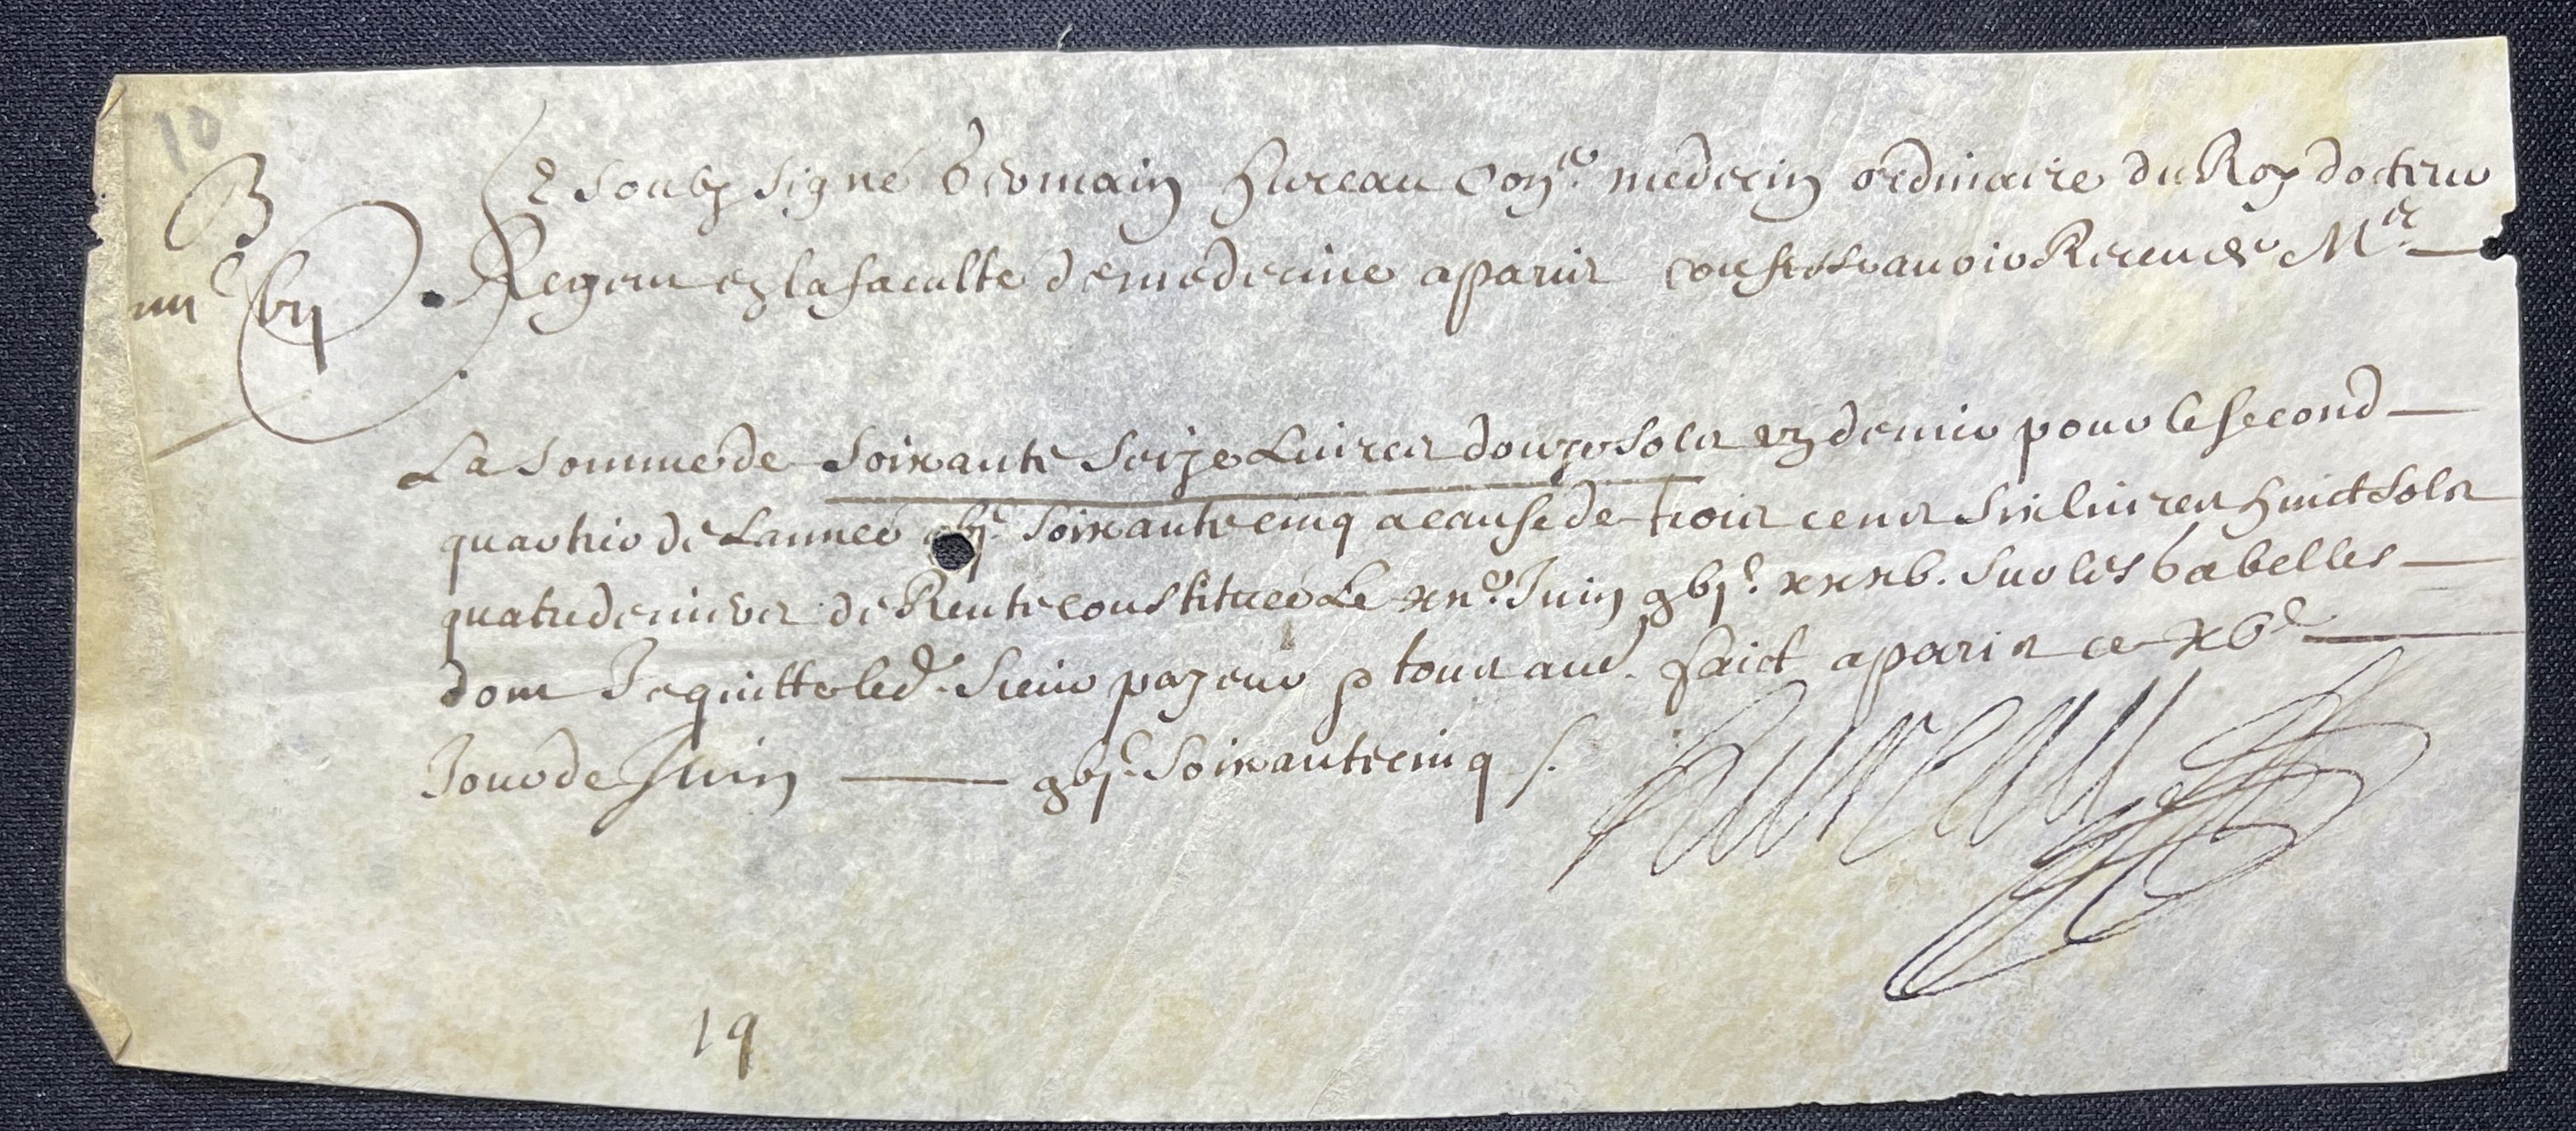 10
B
iiii^c vii
Je soubz signé Germain hureau Con^er medecin ordinaire du Roy docteur
Regent en la faculte de medecine a paris confesse avoir Receu de M^e
La somme de soixante seize Livres douze sols un denier pour le second
quartier de Lannee gbj^c soixante cinq a cause de trois cens six livres huict sols
quatre deniers de Rente constituee Le Juin gbj^c xxxb. sur les Gabelles
dont Je quitte led. sieur payeur p tous au^s. faict a paris ce xb^e
Jour de Juin gbj^c soixante cinq /.
hureau
19